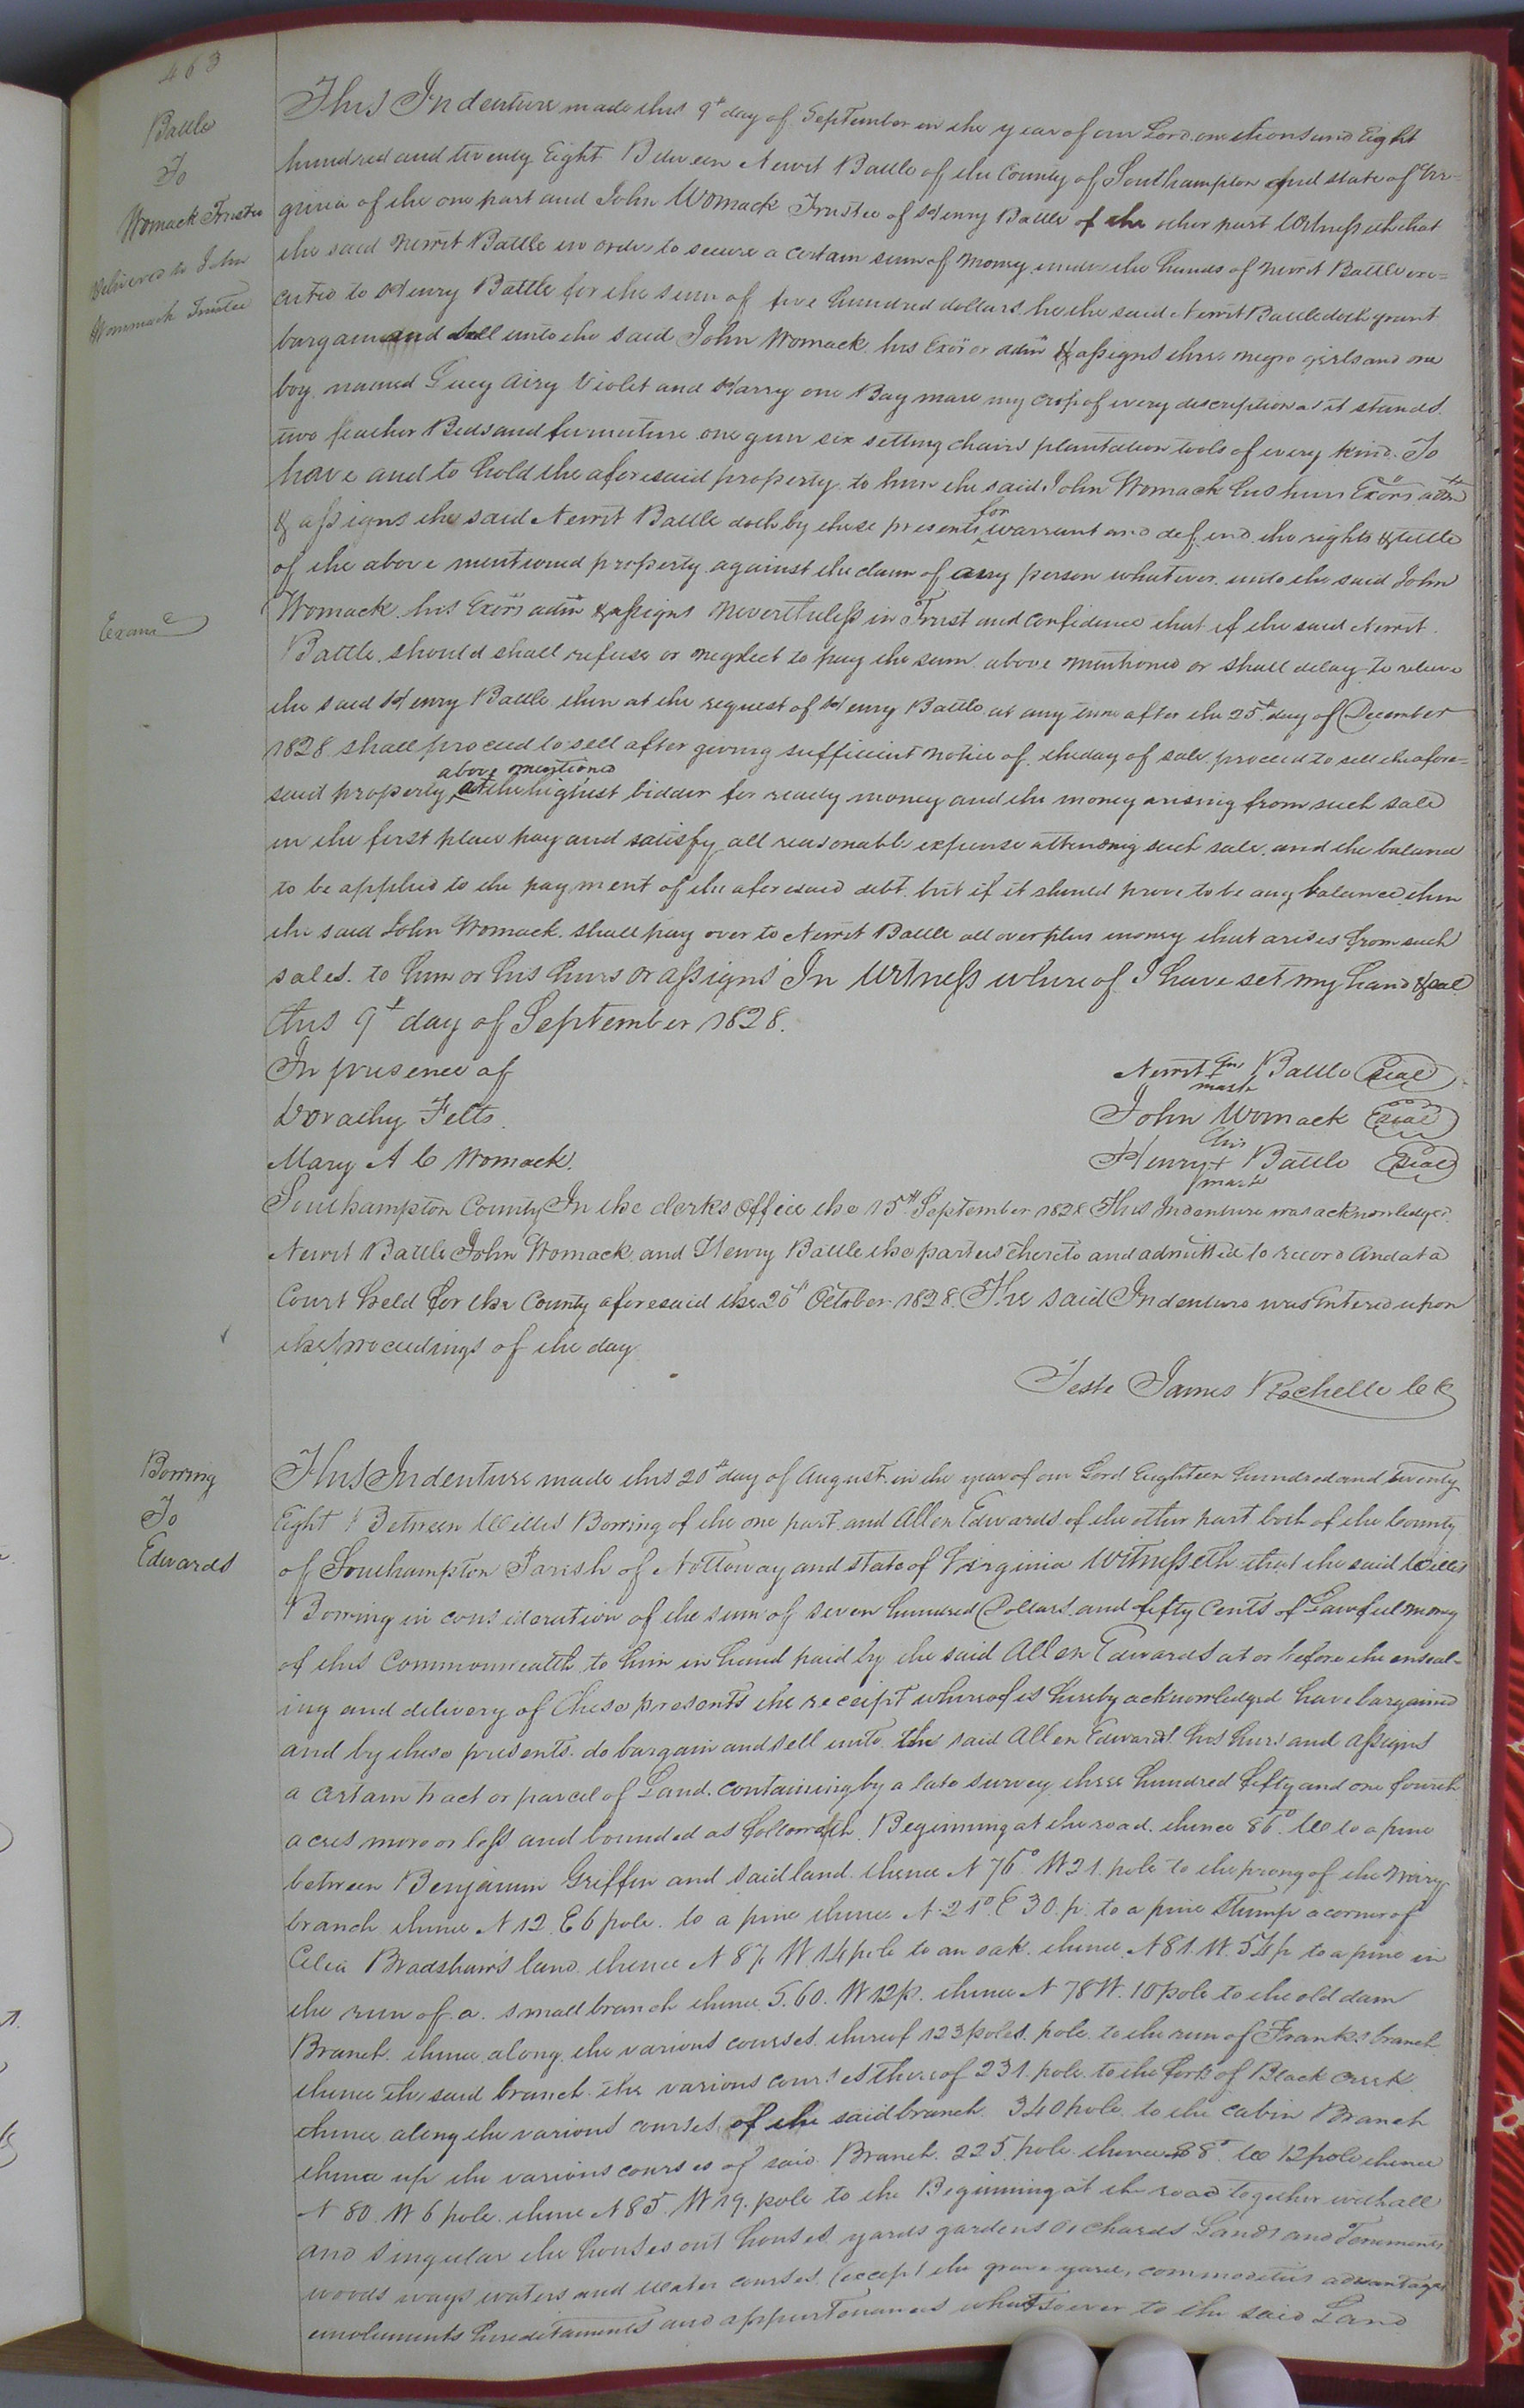 463
Battle
To
Womack Trustee
Delivered to John
Wommack Trustee
This Indenture made this 9th day of September in the year of our Lord one thousand Eight
hundred and twenty Eight Between Newit Battle of the County of Southampton and state of Vir=
ginia of the one part and John Womack Trustee of Henry Battle of the other part Witnesseth that
the said Newit Battle in order to secure a certain sum of money under the hands of Newit Battle exe=
cuted to Henry Battle for the sum of five hundred dollars he the said Newit Battle doth grant
bargain and sell unto the said John Womack his Exors or adm & assigns three negro girls and one
boy named Lucy Airy Violet and Harry one Bay mare my crop of every description as it stands
two feather Beds and furniture one gun six setting chairs plantation tools of every kind. To
have and to hold the aforesaid property to him the said John Womack his heirs Exors adm
& assigns the said Newit Battle doth by these presents for warrant and defend the rights & title
of the above mentioned property against the claim of any person whatever unto the said John
Exam.d
Womack his Exors adm & assigns Nevertheless in Trust and confidence that if the said Newit
Battle should shall refuse or neglect to pay the sum above mentioned or shall delay to relieve
the said Henry Battle then at the request of Henry Battle at any time after the 25th day of December
1828 shall proceed to sell after giving sufficient notice of the day of sale proceed to sell the afore=
said property above mentioned at the highest bidder for ready money and the money arising from such sale
in the first place pay and satisfy all reasonable expense attending such sale and the balance
to be applied to the payment of the aforesaid debt but if it should prove to be any balance then
the said John Womack shall pay over to Newit Battle all overplus money that arises from such
sales to him or his heirs or assigns In Witness whereof I have set my hand & seal
this 9th day of September 1828.
In presence of
Newit his + mark Battle Seal
Dorathy Felts
John Womack Seal
Mary A C Womack.
Henry his + mark Battle Seal
Southampton County In the clerks Office the 15th September 1828 This Indenture was acknowledged
Newit Battle John Womack and Henry Battle the parties thereto and admitted to record And at a
Court held for the County aforesaid the 20th October 1828. The said Indenture was Entered upon
the proceedings of the day
Teste James Rochelle C C
Borring
To
Edwards
This Indenture made this 20th day of August in the year of our Lord Eighteen hundred and twenty
Eight Between Willis Borring of the one part and Allen Edwards of the other part both of the County
of Southampton Parish of Nottoway and state of Virginia Witnesseth that the said Willis
Borring in consideration of the sum of seven hundred Dollars and fifty Cents of Lawful money
of this Commonwealth to him in hand paid by the said Allen Edwards at or before the enseal=
ing and delivery of these presents the receipt whereof is hereby acknowledged have bargained
and by these presents do bargain and sell unto the said Allen Edwards his heirs and assigns
a certain tract or parcel of Land containing by a late survey three hundred fifty and one fourth
acres more or less and bounded as followeth Beginning at the road thence to a pine
between Benjamin Griffin and said land thence N 76° W 21 pole to the prong of the miry
branch thence N 12 E 6 pole to a pine thence N 21° E 30 p. to a pine Stump a corner of
Celia Bradshaw's land thence N 87 W 14 pole to an oak thence N 81. W. 54 p to a pine in
the run of a small branch thence S. 60. W 12 p. thence N 78 W. 10 pole to the old dam
Branch thence along the various courses thereof 123 poles pole to the run of Franks branch
thence the said branch the various courses thereof 231 pole to the fork of Black creek
thence along the various courses of the said branch 340 pole to the cabin Branch
thence up the various courses of said Branch 225 pole thence 12 pole thence
N 80 W 6 pole thence N 85 W 19 pole to the Beginning at the road together with all
and singular the houses out houses yards gardens orchards Lands and Tenements
woods ways waters and water courses (except the grave yard, commodities advantages
emoluments hereditaments and appurtenances whatsoever to the said Land